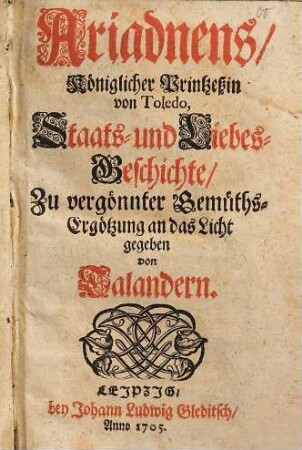 Ariadnens/
Königlicher Printzeßin
von Toledo,
Staats- und Liebes-
Geschichte/
Zu vergönnter Gemüths-
Ergötzung an das Licht
gegeben
von
Talandern.
LEIPZIG/
bey Johann Ludwig Gleditsch/
Anno 1705.